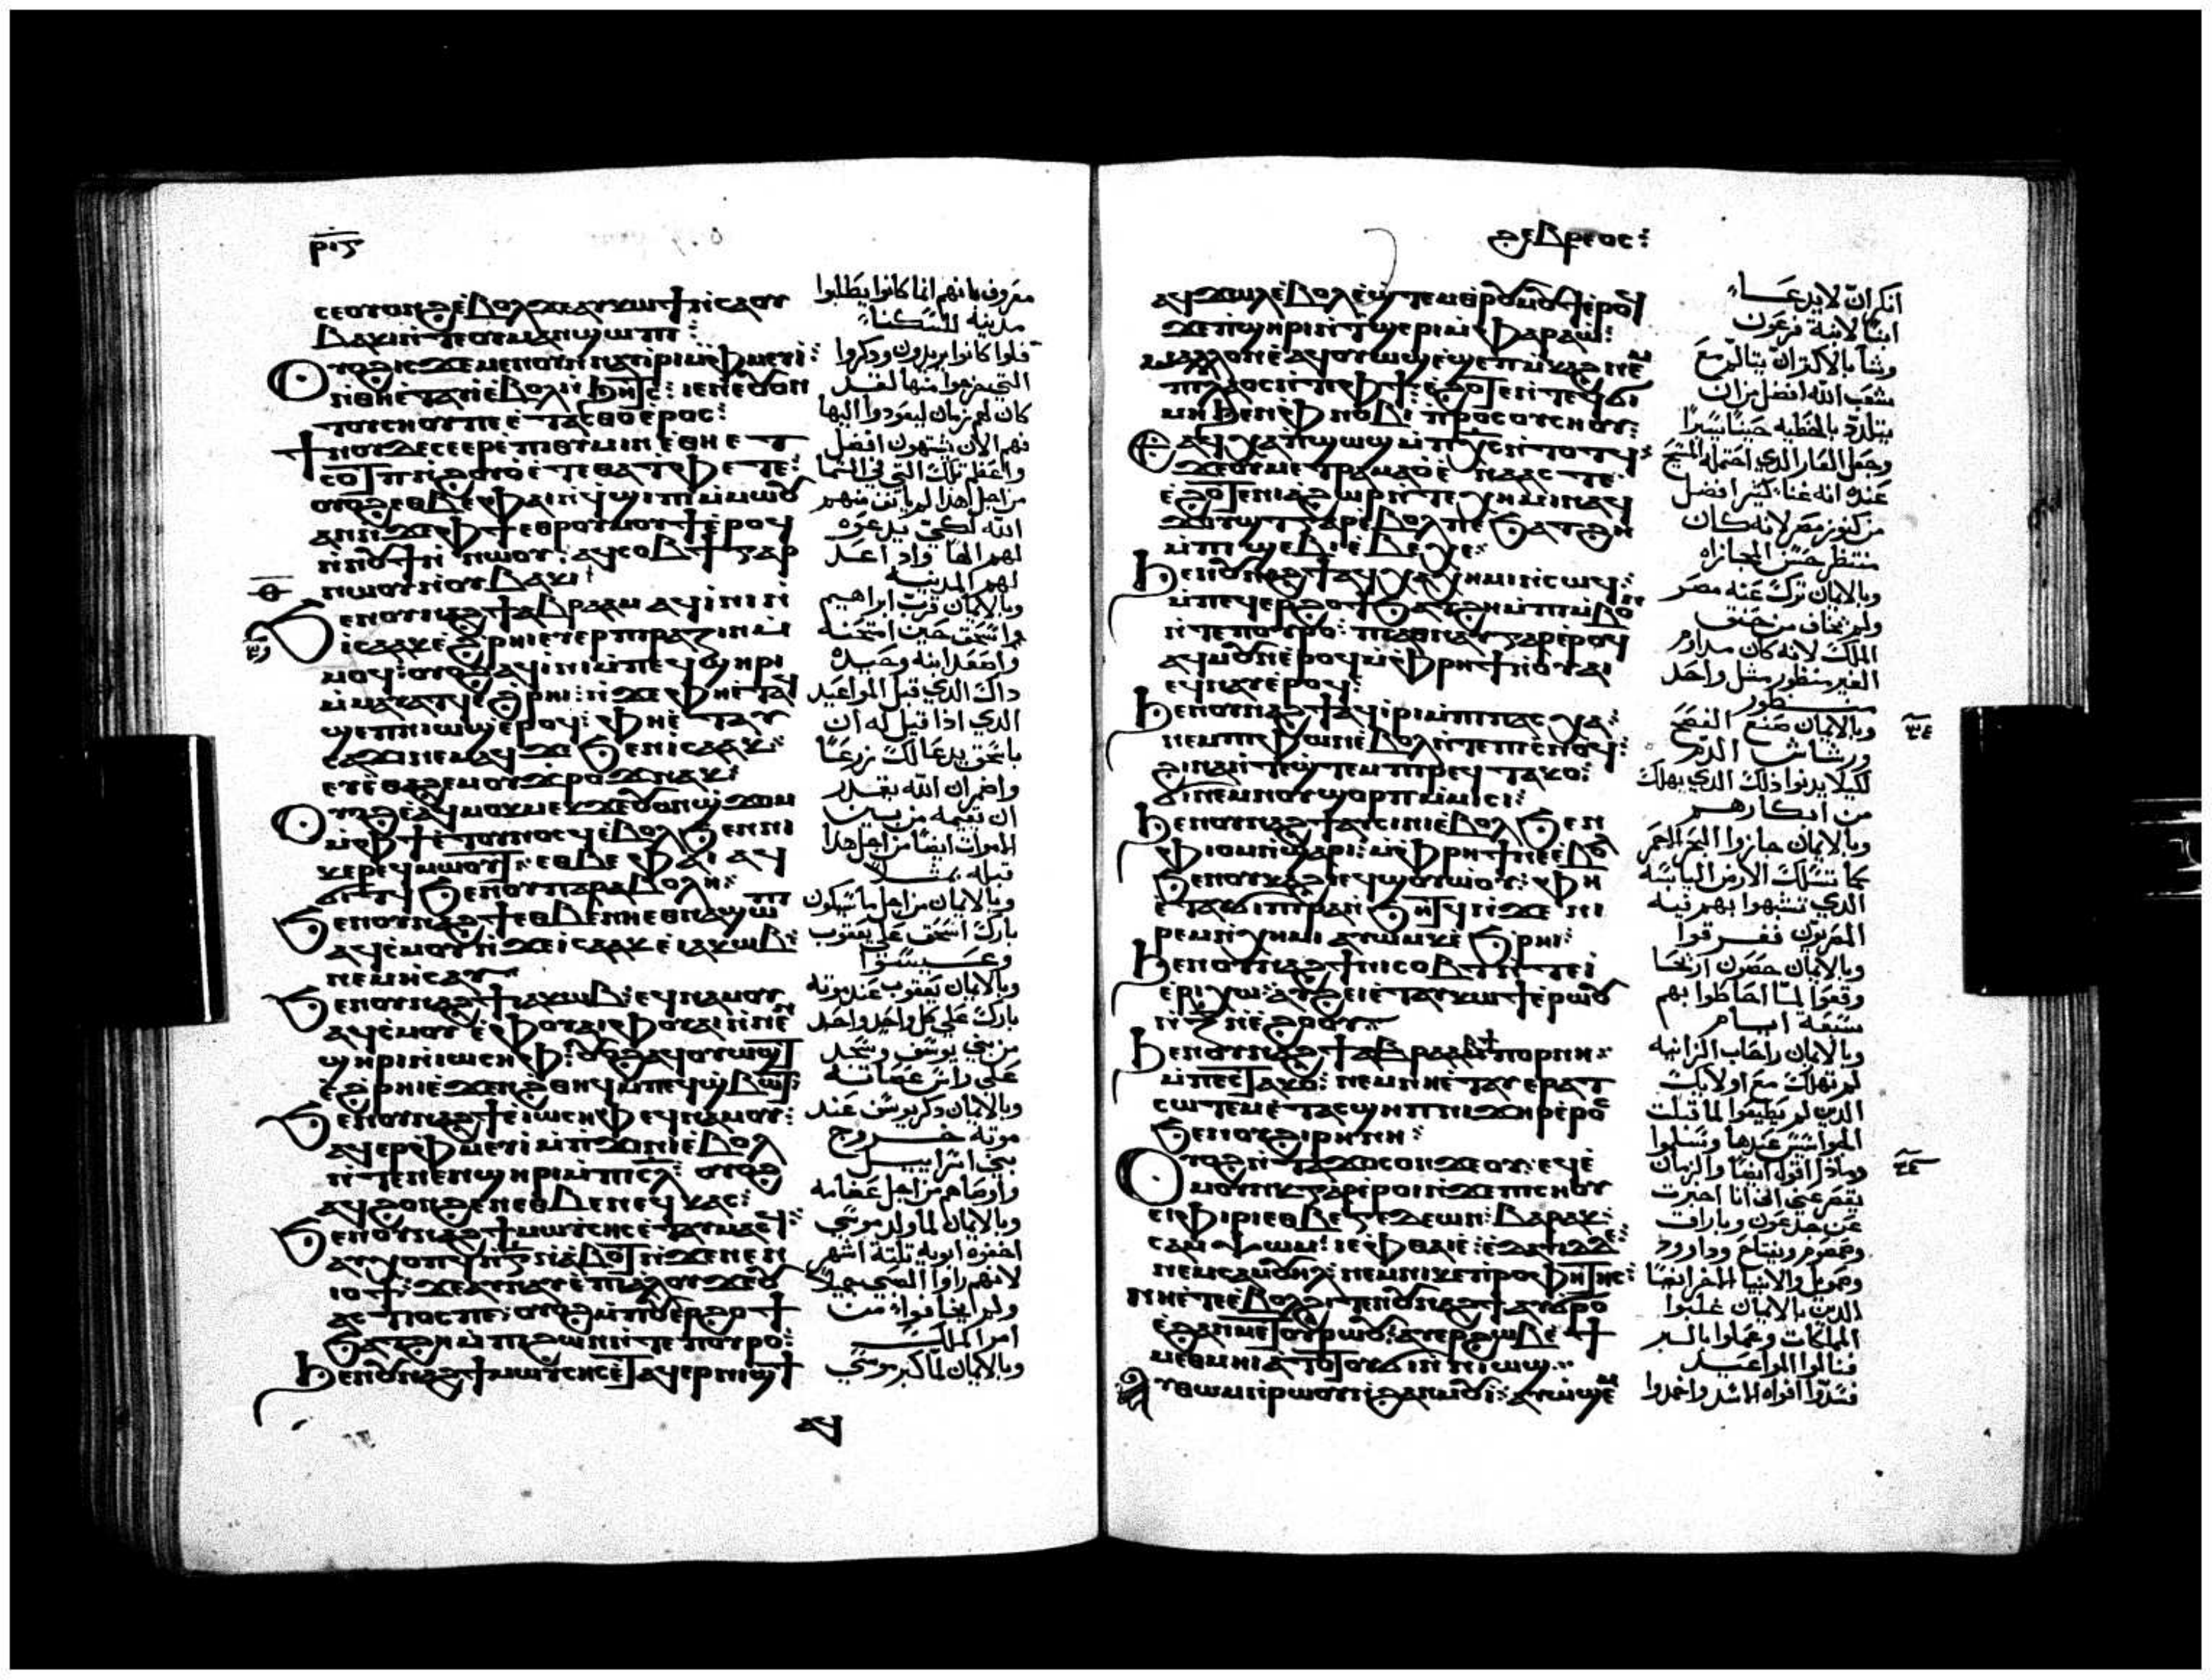 ⲣⲓⲋ
ⲥⲉⲟⲩⲟⲛϩ ⲉⲃⲟⲗ ϫⲉ ⲁⲩⲕⲱϯ ⲛⲥⲁ ⲟⲩ
ⲃⲁⲕⲓ ⲛⲧⲉ ⲟⲩⲙⲁⲛϣⲱⲡⲓ
ⲟⲩⲟϩ ⲓⲥϫⲉ ⲛⲉⲛⲁⲩⲓⲣⲓ ⲙⲫⲙⲉⲩⲓ
ⲛⲑⲏ ⲉⲧⲁⲩⲓ ⲉⲃⲟⲗ ⲛϧⲏⲧⲥ ⲓⲉ ⲛⲉ ⲟⲩⲟⲛ
ⲧⲟⲩ ⲥⲏⲟⲩ ⲡⲉ ⲉⲧⲁⲥⲑⲟ ⲉⲣⲟⲥ
ϯⲛⲟⲩ ⲇⲉ ⲥⲉⲉⲣⲉⲡⲓⲑⲩⲙⲓⲛ ⲉⲑⲏ ⲉⲧ
ⲥⲟⲧⲡ ⲛϩⲟⲩⲟ ⲉⲧⲉ ⲑⲁ ⲧⲫⲉ ⲧⲉ
ⲟⲩⲟϩ ⲉⲑⲃⲉ ⲫⲁⲓ ⲛϥϣⲓⲡⲓ ⲙⲙⲱⲟⲩ
ⲁⲛ ⲛϫⲉ ⲫϯ ⲉⲑⲣⲟⲩⲙⲟⲩϯ ⲉⲣⲟϥ
ⲛⲛⲟⲩϯ ⲛⲱⲟⲩ ⲁϥⲥⲟⲃϯ ⲅⲁⲣ
ⲛⲱⲟⲩ ⲛⲟⲩⲃⲁⲕⲓ
ϧⲉⲛ ⲟⲩⲛⲁϩϯ ⲁⲃⲣⲁⲁⲙ ⲁϥⲓⲛⲓ ⲛ
ⲓⲥⲁⲁⲕ ⲉϩⲣⲏⲓ ⲉⲧⲉⲣⲡⲓⲣⲁⲍⲓⲛ ⲙ
ⲙⲟϥ ⲟⲩⲟϩ ⲁϥⲓⲛⲓ ⲙⲡⲉϥϣⲏⲣⲓ
ⲙⲙⲁⲩⲁⲧϥ ⲉϩⲣⲏⲓ ⲛϫⲉ ⲫⲏ ⲉⲧⲁϥ
ϣⲉⲡ ⲛⲓⲱϣ ⲉⲣⲟϥ ⲫⲏ ⲉⲧⲁⲩ
ⲥⲁϫⲓ ⲛⲉⲙⲁϥ ϫⲉ ϧⲉⲛ ⲓⲥⲁⲁⲕ
ⲉⲩⲉⲑⲁϩⲉⲙ ⲟⲩϫⲣⲟϫ ⲛⲁⲕ
ⲟⲩⲟϩ ⲉⲁϥⲙⲟⲕⲙⲉⲕ ϫⲉ ⲟⲩⲟⲛϣϫⲟⲙ
ⲙⲫϯ ⲉⲧⲟⲩⲛⲟⲥϥ ⲉⲃⲟⲗ ϧⲉⲛ ⲛⲓ
ⲕⲉⲣⲉϥⲙⲱⲟⲩⲧ ⲉⲑⲃⲉ ⲫⲁⲓ ⲁϥ
ϭⲓⲧϥ ϧⲉⲛ ⲟⲩⲡⲁⲣⲁⲃⲟⲗⲏ
ϧⲉⲛ ⲟⲩⲛⲁϩϯ ⲉⲑⲃⲉ ⲛⲏ ⲉⲑⲛⲁϣⲱⲡⲓ
ⲁϥⲥⲙⲟⲩ ⲛϫⲉ ⲓⲥⲁⲁⲕ ⲉⲓⲁⲕⲱⲃ
ⲛⲉⲙ ⲏⲥⲁⲩ
ϧⲉⲛ ⲟⲩⲛⲁϩϯ ⲓⲁⲕⲱⲃ ⲉϥⲛⲁⲙⲟⲩ
ⲁϥⲥⲙⲟⲩ ⲉⲫⲟⲩⲁⲓ ⲫⲟⲩⲁⲓ ⲛⲛⲉⲛ
ϣⲏⲣⲓ ⲛⲓⲱⲥⲏⲫ ⲟⲩⲟϩ ⲁϥⲟⲩⲱϣⲧ
ⲉϩⲣⲏⲓ ⲉϫⲉⲛ ϩⲑⲏϥ ⲙⲡⲉϥϣⲃⲱⲧ
ϧⲉⲛ ⲟⲩⲛⲁϩϯ ⲓⲱⲥⲏⲫ ⲉϥⲛⲁⲙⲟⲩ
ⲁϥⲉⲣⲫⲙⲉⲩⲓ ⲙⲡϫⲓⲛⲓ ⲉⲃⲟⲗ
ⲛⲧⲉ ⲛⲉⲛϣⲏⲣⲓ ⲙⲡⲓⲥⲗ ⲟⲩⲟϩ
ⲁϥϩⲟⲛϩⲉⲛ ⲉⲑⲃⲉ ⲛⲉϥⲕⲁⲥ
ϧⲉⲛ ⲟⲩⲛⲁϩϯ ⲙⲱⲩⲥⲏⲥ ⲉⲧⲁⲩⲙⲁⲥϥ
ⲁⲩⲭⲟⲡϥ ⲛⲅ ⲛⲁⲃⲟⲧ ⲛϫⲉ ⲛⲉϥ
ⲓⲟϯ ϫⲉ ⲁⲩⲛⲁⲩ ⲉⲡⲓⲁⲗⲟⲩ ϫⲉ ⲟⲩ
ⲁⲥⲧⲓⲟⲥ ⲡⲉ ⲟⲩⲟϩ ⲙⲡⲟⲩⲉⲣϩⲟϯ
ϧⲁⲧϩⲏ ⲙⲡϩⲱⲛ ⲛⲧⲉ ⲡⲟⲩⲣⲟ
ϧⲉⲛ ⲟⲩⲛⲁϩϯ ⲙⲱⲩⲥⲏⲥ ⲉⲧⲁϥⲉⲣⲛⲓϣϯ
ⲁϥ
معروف بانهم انما كانوا يطلبوا
مدينة للسكنا
فلوا كانوا يريدون وذكروا
التي خرجوا منها لقد
كان لهم زمان ليعودوا اليها
فهم الان يشتهون افضل
واعظم تلك التي في السما
من اجل هذا لم يانف منهم
الله لكي يدعوه
لهم الها واذ اعد
لهم المدينة
وبالايمان قرب ابراهيم
اسحق حين امتحنه
واصعد ابنه وحيده
داك الذي قبل المواعيد
الذي اذا قيل له ان
باسحق يدعا لك زرعا
واضمر ان الله يقدر
ان يقيمه من بين
الاموات ايضا من اجل هذا
قبله بمثلا
وبالايمان من اجل ما سيكون
بارك اسحق على يعقوب
وعيسوا
وبالايمان يعقوب عند موته
بارك على كل واحد واحد
من بني يوسف وسجد
على راس عصاته
وبالايمان ذكر يوسف عند
موته خروج
بني اسراييل
واوصاهم من اجل عظامه
وبالايمان لما ولد موسي
اخفوه ابويه ثلثة اشهر
لانهم راوا الصبي جميلا
ولم يخافوا من
امر الملك
وبالايمان لما كبر موسي
ϩⲉⲃⲣⲉⲟⲥ
ⲁϥϫⲱⲗ ⲉⲃⲟⲗ ⲉϣⲧⲉⲙⲑⲣⲟⲩⲙⲟⲩϯ ⲉⲣⲟϥ
ϫⲉ ⲡϣⲏⲣⲓ ⲛⲧϣⲉⲣⲓ ⲙⲫⲁⲣⲁⲱ
ⲙⲁⲗⲗⲟⲛ ⲉⲁϥⲟⲩⲱϣ ⲉϣⲉⲡⲙⲕⲁϩ ⲛⲉⲙ
ⲡⲓⲗⲁⲟⲥ ⲛⲧⲉ ⲫϯ ⲉϩⲟⲧⲉ ⲛⲧⲉϥϭⲓ
ⲙⲏϧⲉⲛ ⲫⲛⲟⲃⲓ ⲡⲣⲟⲥ ⲟⲩⲥⲏⲟⲩ
ⲉⲁϥⲭⲁ ⲡϣⲱϣ ⲙⲡⲭⲥ ⲛⲧⲟⲧϥ
ϫⲉ ⲟⲩⲙⲉⲧⲣⲁⲙⲁⲟ ⲉⲛⲁⲁⲥ ⲧⲉ
ⲉϩⲟⲧⲉ ⲛⲓⲁϩⲱⲣ ⲛⲧⲉ ⲭⲏⲙⲓ ⲛⲁϥ
ϫⲟⲩϣⲧ ⲅⲁⲣ ⲉⲃⲟⲗ ⲡⲉ ϧⲁⲧϩⲏ
ⲙⲡϣⲉⲃⲓⲉⲃⲉⲭⲉ
ϧⲉⲛ ⲟⲩⲛⲁϩϯ ⲁϥⲭⲁ ⲭⲏⲙⲓ ⲛⲥⲱϥ
ⲙⲡⲉϥⲉⲣϩⲟϯ ϧⲁⲧϩⲏ ⲙⲡⲙⲃⲟⲛ
ⲛⲧⲉ ⲡⲟⲩⲣⲟ ⲡⲓⲁⲑⲛⲁⲩ ⲅⲁⲣ ⲉⲣⲟϥ
ⲁϥⲙⲟⲩⲛ ⲉⲣⲟϥ ⲙⲫⲣⲏϯ ⲛⲟⲩⲁⲓ
ⲉϥⲛⲁⲩ ⲉⲣⲟϥ
ϧⲉⲛ ⲟⲩⲛⲁϩϯ ⲁϥⲓⲣⲓ ⲙⲡⲓⲡⲁⲥⲭⲁ
ⲛⲉⲙ ⲡⲫⲱⲛ ⲉⲃⲟⲗ ⲛⲧⲉ ⲡⲓⲥⲛⲟϥ
ϩⲓⲛⲁ ⲛⲧⲉϣⲧⲉⲙ ⲡⲓⲣⲉϥⲧⲁⲕⲟ
ϭⲓⲛⲉⲙ ⲛⲟⲩϣⲟⲣⲡ ⲙⲙⲓⲥⲓ
ϧⲉⲛ ⲟⲩⲛⲁϩϯ ⲁⲩⲥⲓⲛⲓ ⲉⲃⲟⲗ ϧⲉⲛ
ⲫⲓⲟⲙ ⲛϣⲁⲣⲓ ⲙⲫⲣⲏϯ ⲛⲉⲃⲟⲗ
ϧⲉⲛ ⲟⲩⲕⲁϩⲓ ⲉϥϣⲟⲩⲱⲟⲩ ⲫⲏ
ⲉⲧⲁⲩϭⲓⲡⲓⲣⲁ ⲛϧⲏⲧϥ ⲛϫⲉ ⲛⲓ
ⲣⲉⲙⲛⲭⲏⲙⲓ ⲁⲩⲱⲙⲕ ⲉϧⲣⲏⲓ
ϧⲉⲛ ⲟⲩⲛⲁϩϯ ⲛⲓⲥⲟⲃⲧ ⲛⲧⲉ
ⲉⲣⲓⲭⲱ ⲁⲩϩⲉⲓ ⲉⲧⲁⲩⲕⲱϯ ⲉⲣⲱⲟⲩ
ⲛⲍ ⲛⲉϩⲟⲟⲩ
ϧⲉⲛ ⲟⲩⲛⲁϩϯ ⲣⲁⲁⲃ ϯⲡⲟⲣⲛⲏ
ⲙⲡⲉⲥⲧⲁⲕⲟ ⲛⲉⲙ ⲛⲏ ⲉⲧⲁⲩⲉⲣⲁⲧ
ⲥⲱⲧⲉⲙ ⲉⲧⲁⲥϣⲉⲡ ⲛⲓϫⲏⲣ ⲉⲣⲟⲥ
ϧⲉⲛ ⲟⲩϩⲓⲣⲏⲛⲏ
ⲟⲩⲟϩ ⲛⲧⲁϫⲟⲥ ⲟⲛ ϫⲉ ⲟⲩ ⲉϥⲉ
ⲙⲟⲩⲛⲕ ⲅⲁⲣ ⲉⲣⲟⲓ ⲛϫⲉ ⲡⲓⲥⲏⲟⲩ
ⲉⲓⲫⲓⲣⲓ ⲉⲑⲃⲉ ⲅⲉⲇⲉⲱⲛ ⲃⲁⲣⲁⲕ
ⲥⲁⲙⲯⲱⲛ ⲓⲉⲫⲑⲁⲓⲉ ⲇⲁⲩⲓⲇ
ⲛⲉⲙ ⲥⲁⲙⲟⲩⲏⲗ ⲛⲉⲙ ⲛⲓⲕⲉⲡⲣⲟⲫⲏⲧⲏⲥ
ⲛⲏ ⲉⲧⲉ ⲉⲃⲟⲗϩⲓⲧⲉⲛ ⲟⲩⲛⲁϩϯ ⲁⲩϭⲣⲟ
ⲉϩⲁⲛⲙⲉⲧⲟⲩⲣⲱⲟⲩ ⲁⲩⲉⲣϩⲱⲃ ⲉϯ
ⲙⲉⲑⲙⲏⲓ ⲁ ⲧⲟⲧⲟⲩ ϭⲓ ⲛⲛⲓⲱϣ
ⲁⲩⲑⲱⲙ ⲛⲣⲱⲟⲩ ⲛϩⲁⲛⲙⲟⲩⲓ ⲁⲩⲱϣⲉⲙ
انكر ان لا يدعا
ابنا لابنة فرعون
وشا بالاكثر ان يتالم مع
شعب الله افضل من ان
يتلذذ بالخطية حينا يسيرا
وجعل العار الذي احتمله المسيح
عنده انه غناء كثير افضل
من كنوز مصر لانه كان
منتظر حسن المجازاه
وبالايمان ترك عنه مصر
ولم يخاف من حنق
الملك لانه كان مداوم
الغير منظور مثل واحد
منظور
وبالايمان صنع الفصح
ورشاش الدم
لكيلا يدنوا ذلك الذي يهلك
من ابكارهم
وبالايمان جازوا البحر الاحمر
كما تسلك الارض اليابسة
الذي تشبهوا بهم فيه
المصريون فغرقوا
وبالايمان حصون اريحا
وقعوا لما احاطوا بهم
سبعة ايام
وبالايمان راحاب الزانية
لم تهلك مع اولايك
الذين لم يطيعوا لما قبلت
الجواسيس عندها وسلوا
وماذا اقول ايضا والزمان
يقصر عني اذ انا اخبرت
عن جدعون وباراق
وشمشوم ويفتاح وداوود
وصمويل والانبيا الاخر ايضا
الذين بالايمان غلبوا
الملكات وعملوا بالبر
فنالوا المواعيد
فسدوا افواه الاسد واخمدوا